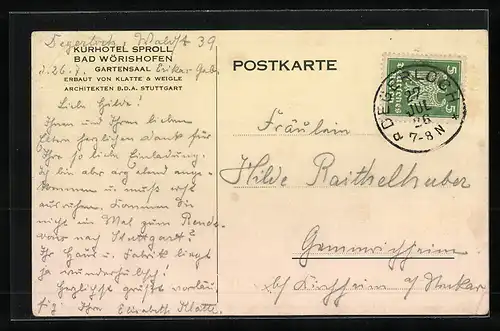 Degerloch, Waldstr 39
KURHOTEL SPROLL
BAD WÖRISHOFEN
GARTENSAAL
ERBAUT VON KLATTE & WEIGLE
ARCHITEKTEN B.D.A. STUTTGART
d. 26.7.
Liebe Hilde!
Ihnen und Ihren lieben
Eltern herzlichen Dank für
Ihre so liebe Einladung.
Ich bin aber arg abend ange-
kommen u. muß erst
ausruhen. Kommen Sie
nicht ein Mal zum Rende-
vous nach Stuttgart?
Ihr Haus u. Fabrik liegt
ja wunderhübsch!
Herzlichst grüßt vorläu-
fig Ihre Elisabeth Klatte.
POSTKARTE
5 5
DEGERLOCH
27
JUL
26
7-8 N
Fräulein
Hilde Raithelhuber
Gemmrigheim
b/ Kirchheim a/ Neckar